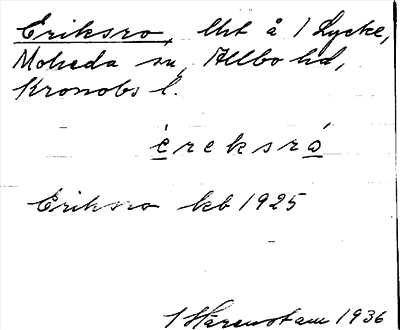 Eriksro, lht å 1 Lycke,
Moheda sn, Allbo hd,
Kronobs l.
èreksró
Eriksro kb 1925
1936